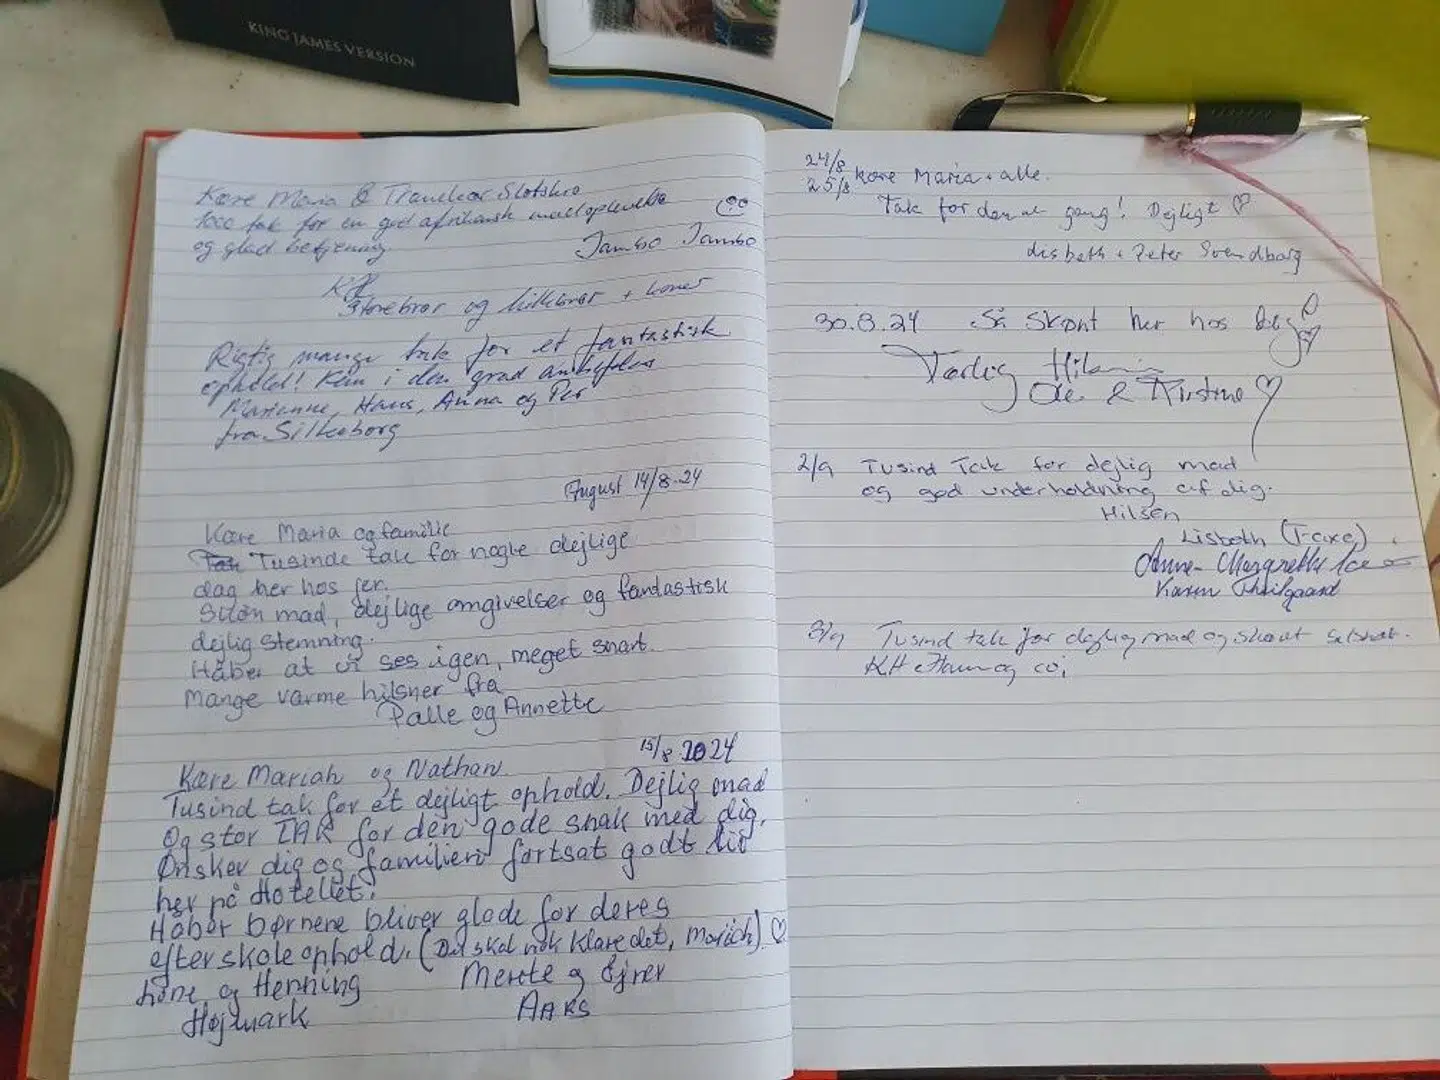 KING JAMES VERSION
Kære Maria & Tranekær Slotskro
1000 tak for en god afrikansk madoplevelse
og glad betjening
Jambo Jambo
KH
Storebror og lillebror + koner
Rigtig mange tak for et fantastisk
ophold! Kan i den grad anbefales
Marianne, Hans, Anna og Per
fra Silkeborg
August 14/8-24
Kære Maria og familie
Tusinde tak for nogle dejlige
dag her hos jer.
Skøn mad, dejlige omgivelser og fandastisk
dejlig stemning.
Håber at vi ses igen, meget snart.
Mange varme hilsner fra
Palle og Annette
15/8 2024
Kære Mariah og Nathan
Tusind tak for et dejligt ophold. Dejlig mad
Og stor TAK for den gode snak med dig.
Ønsker dig og familien fortsat godt liv
her på Hotellet.
Håber børnene bliver glade for deres
efterskoleophold. (Det skal nok klare det, Mariah) ♡
Lone og Henning
Højmark
Merete og Ejner
AARS
24/8
25/8 Kære Maria + alle.
Tak for denne gang! Dejligt ♡
Lisbeth + Peter Svendborg
30.8.24 Så skønt her hos dig ♡
Venlig Hilsen
& Kirstine ♡
2/9 Tusind Tak for dejlig mad
og god underholdning af dig.
Hilsen
Lisbeth (Faxe)
Anne-Margrethe
Karen Thilgaard
3/9 Tusind tak for dejlig mad og skønt selskab.
KH og co.